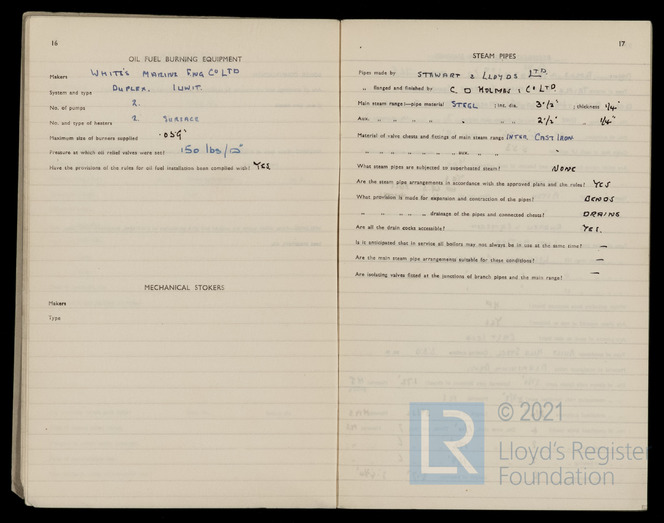 16
OIL FUEL BURNING EQUIPMENT
Makers WHITE'S MARINE ENG CO LTD
System and type DUPLEX. 1 UNIT.
No. of pumps 2.
No. and type of heaters 2 SURFACE
Maximum size of burners supplied .059"
Pressure at which oil relief valves were set? 150 lbs/□"
Have the provisions of the rules for oil fuel installation been complied with? YES
MECHANICAL STOKERS
Makers
Type
17
STEAM PIPES
Pipes made by STEWART & LLOYDS LTD.
„ flanged and finished by C. D HOLMES & CO LTD.
Main steam range:—pipe material STEEL ; ins. dia. 3½" ; thickness ¼"
Aux. „ „ „ „ „ 2½" „ ¼"
Material of valve chests and fittings of main steam range INTER CAST IRON
„ „ „ „ „ „ aux. „ „ "
What steam pipes are subjected to superheated steam? NONE
Are the steam pipe arrangements in accordance with the approved plans and the rules? YES
What provision is made for expansion and contraction of the pipes? BENDS
„ „ „ „ „ drainage of the pipes and connected chests? DRAINS
Are all the drain cocks accessible? YES.
Is it anticipated that in service all boilers may not always be in use at the same time? —
Are the main steam pipe arrangements suitable for these conditions? —
Are isolating valves fitted at the junctions of branch pipes and the main range? —
LR
© 2021
Lloyd's Register
Foundation